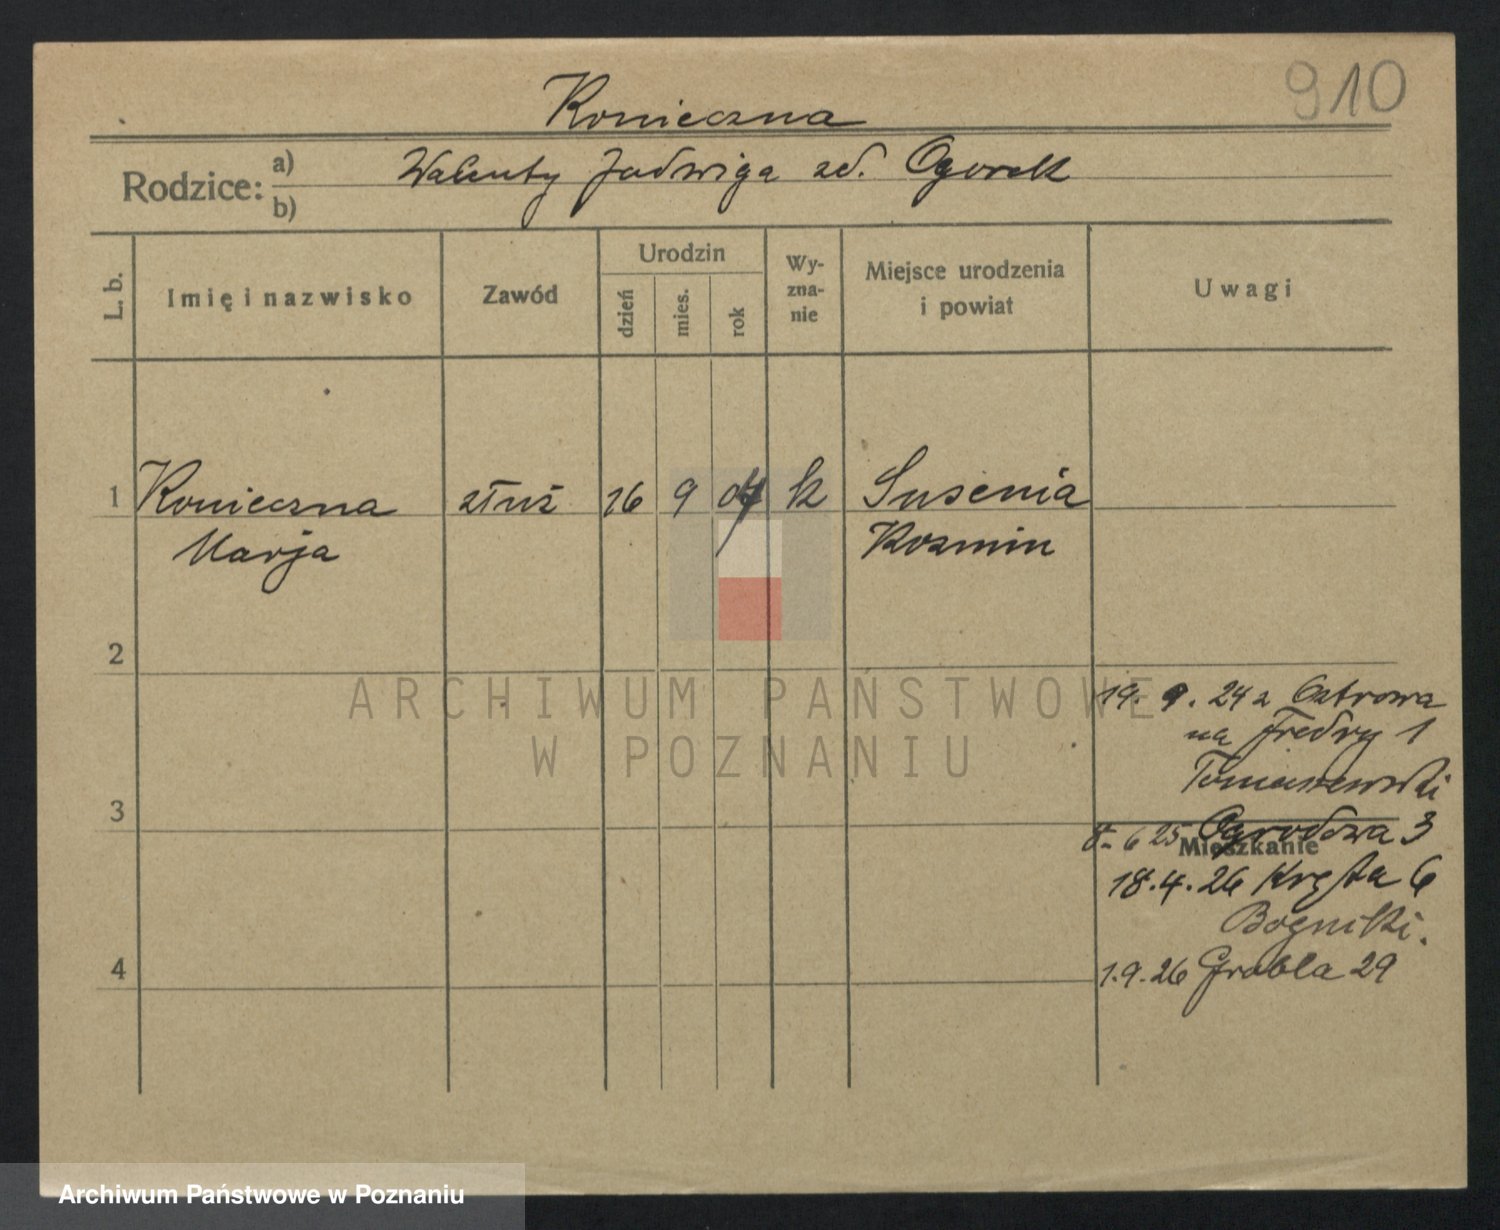 910
Konieczna
Rodzice: a) Walenty Jadwiga zd. Ogorek
b)
L. b.
Imię i nazwisko
Zawód
Urodzin
dzień
mies.
rok
Wy-
zna-
nie
Miejsce urodzenia
i powiat
Uwagi
1 Konieczna służ 16 9 04 k Suśnia
Marja Kozmin
2
19. 9. 24 z Ostrowa
na Fredry 1
Tomaszewski
3
8. 6 25 Ogrodowa 3
Mieszkanie
18. 4. 26 Kręta 6
4
1. 9. 26 Grobla 29
ARCHIWUM PAŃSTWOWE
W POZNANIU
Archiwum Państwowe w Poznaniu